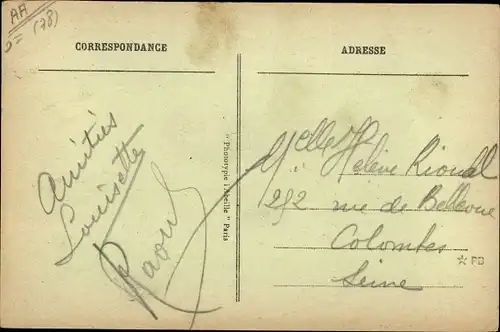 AA
(78)
CORRESPONDANCE
ADRESSE
Amitiés
Louisette
Raoul
" Phototypie l'Abeille " Paris
Melle Hélène Rioual
292 rue de Bellevue
Colombes
Seine
☆ PB